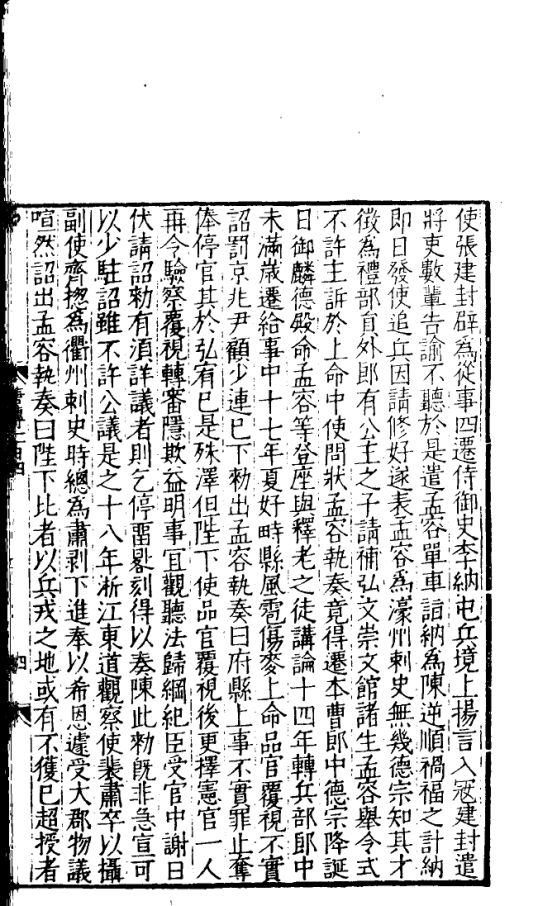 使張建封辟為從事四遷侍御史李納屯兵境上揚言入寇建封遣
將吏數輩告諭不聽於是遣孟容單車詣納為陳逆順禍福之計納
即日發使追兵因請修好遂表孟容為濠州刺史無幾德宗知其才
徵為禮部員外郎有公主之子請補弘文崇文館諸生孟容舉令式
不許主訴於上命中使問狀孟容執奏竟得遷本曹郎中德宗降誕
日御麟德殿命孟容等登座與釋老之徒講論十四年轉兵部郎中
未滿歲遷給事中十七年夏好畤縣風雹傷麥上命品官覆視不實
詔罰京兆尹顧少連已下勑出孟容執奏曰府縣上事不實罪止奪
俸停官其於弘宥已是殊澤但陛下使品官覆視後更擇憲官一人
再令驗察覆視轉審隱欺益明事宜觀聽法歸綱紀臣受官中謝日
伏請詔勑有湏詳議者則乞停留晷刻得以奏陳此勑旣非急宣可
以少駐詔雖不許公議是之十八年浙江東道觀察使裴肅卒以攝
副使齊揔為衢州刺史時總為肅剥下進奉以希恩遽受大郡物議
喧然詔出孟容執奏曰陛下比者以兵戎之地或有不獲已超授者
四